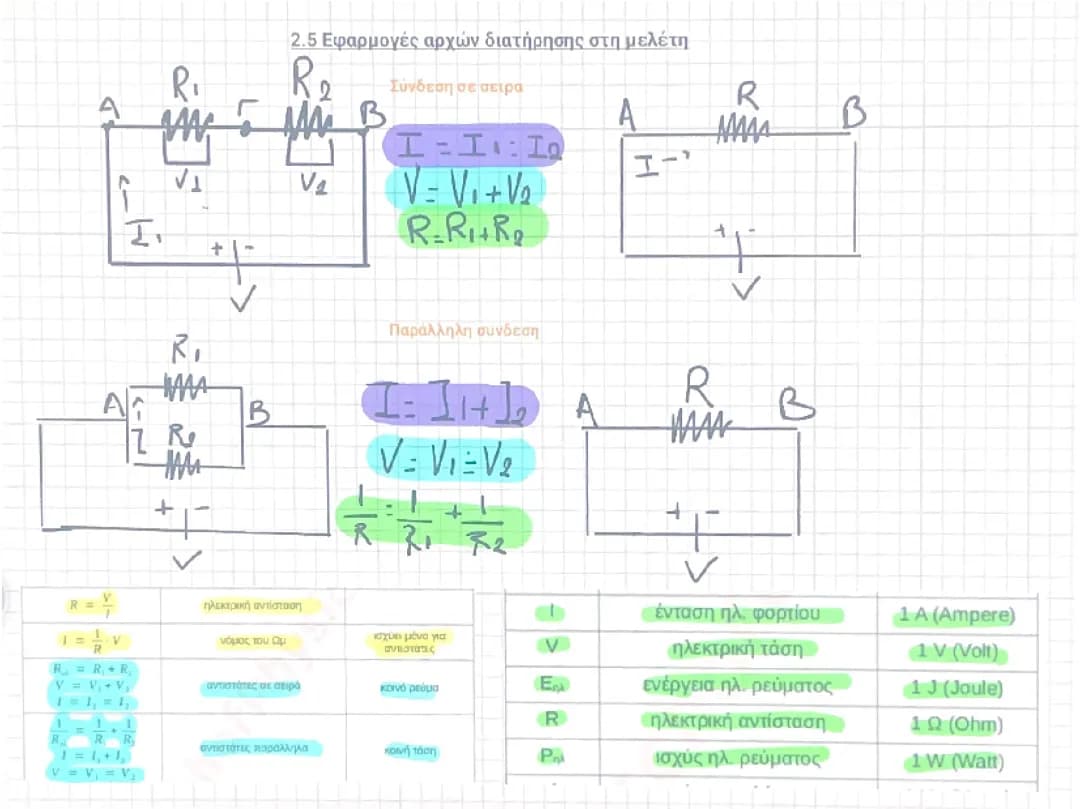 2.5 Εφαρμογές αρχών διατήρησης στη μελέτη
Σύνδεση σε σειρα
R₁ R₂
A Γ B
V1 V2
I₁
+ -
V
I = I₁ = I₂
V = V₁ + V₂
R = R₁ + R₂
R
A B
I →
+ -
V
Παράλληλη συνδεση
R₁
A B
I R₂
+ -
V
I = I₁ + I₂
V = V₁ = V₂
1/R = 1/R₁ + 1/R₂
R
A B
+ -
V
R = V/I ηλεκτρική αντίσταση
I = 1/R · V νόμος του Ωμ ισχύει μόνο για αντιστάτες
R = R₁ + R₂
V = V₁ + V₂ αντιστάτες σε σειρά κοινό ρεύμα
I = I₁ = I₂
1/R = 1/R + 1/R
I = I₁ + I₂ αντιστάτες παράλληλα κοινή τάση
V = V₁ = V₂
I ένταση ηλ. φορτίου 1 A (Ampere)
V ηλεκτρική τάση 1 V (Volt)
Eηλ ενέργεια ηλ. ρεύματος 1 J (Joule)
R ηλεκτρική αντίσταση 1 Ω (Ohm)
Pηλ ισχύς ηλ. ρεύματος 1 W (Watt)